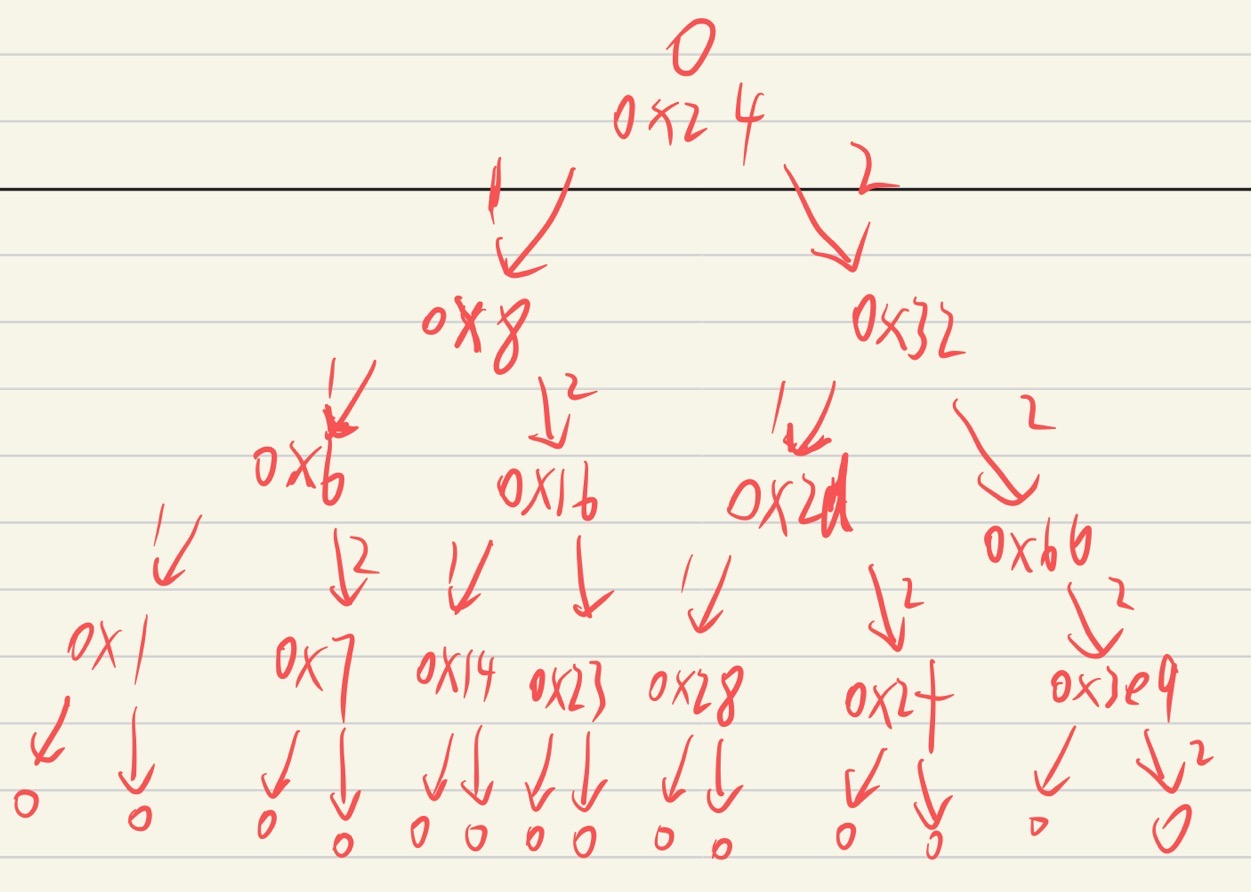 0
0x24
1 2
0x8 0x32
1 2 1 2
0x6 0x16 0x2d 0x6b
1 2 1 1 2 2
0x1 0x7 0x14 0x23 0x28 0x2f 0x3e9
2
0 0 0 0 0 0 0 0 0 0 0 0 0 0